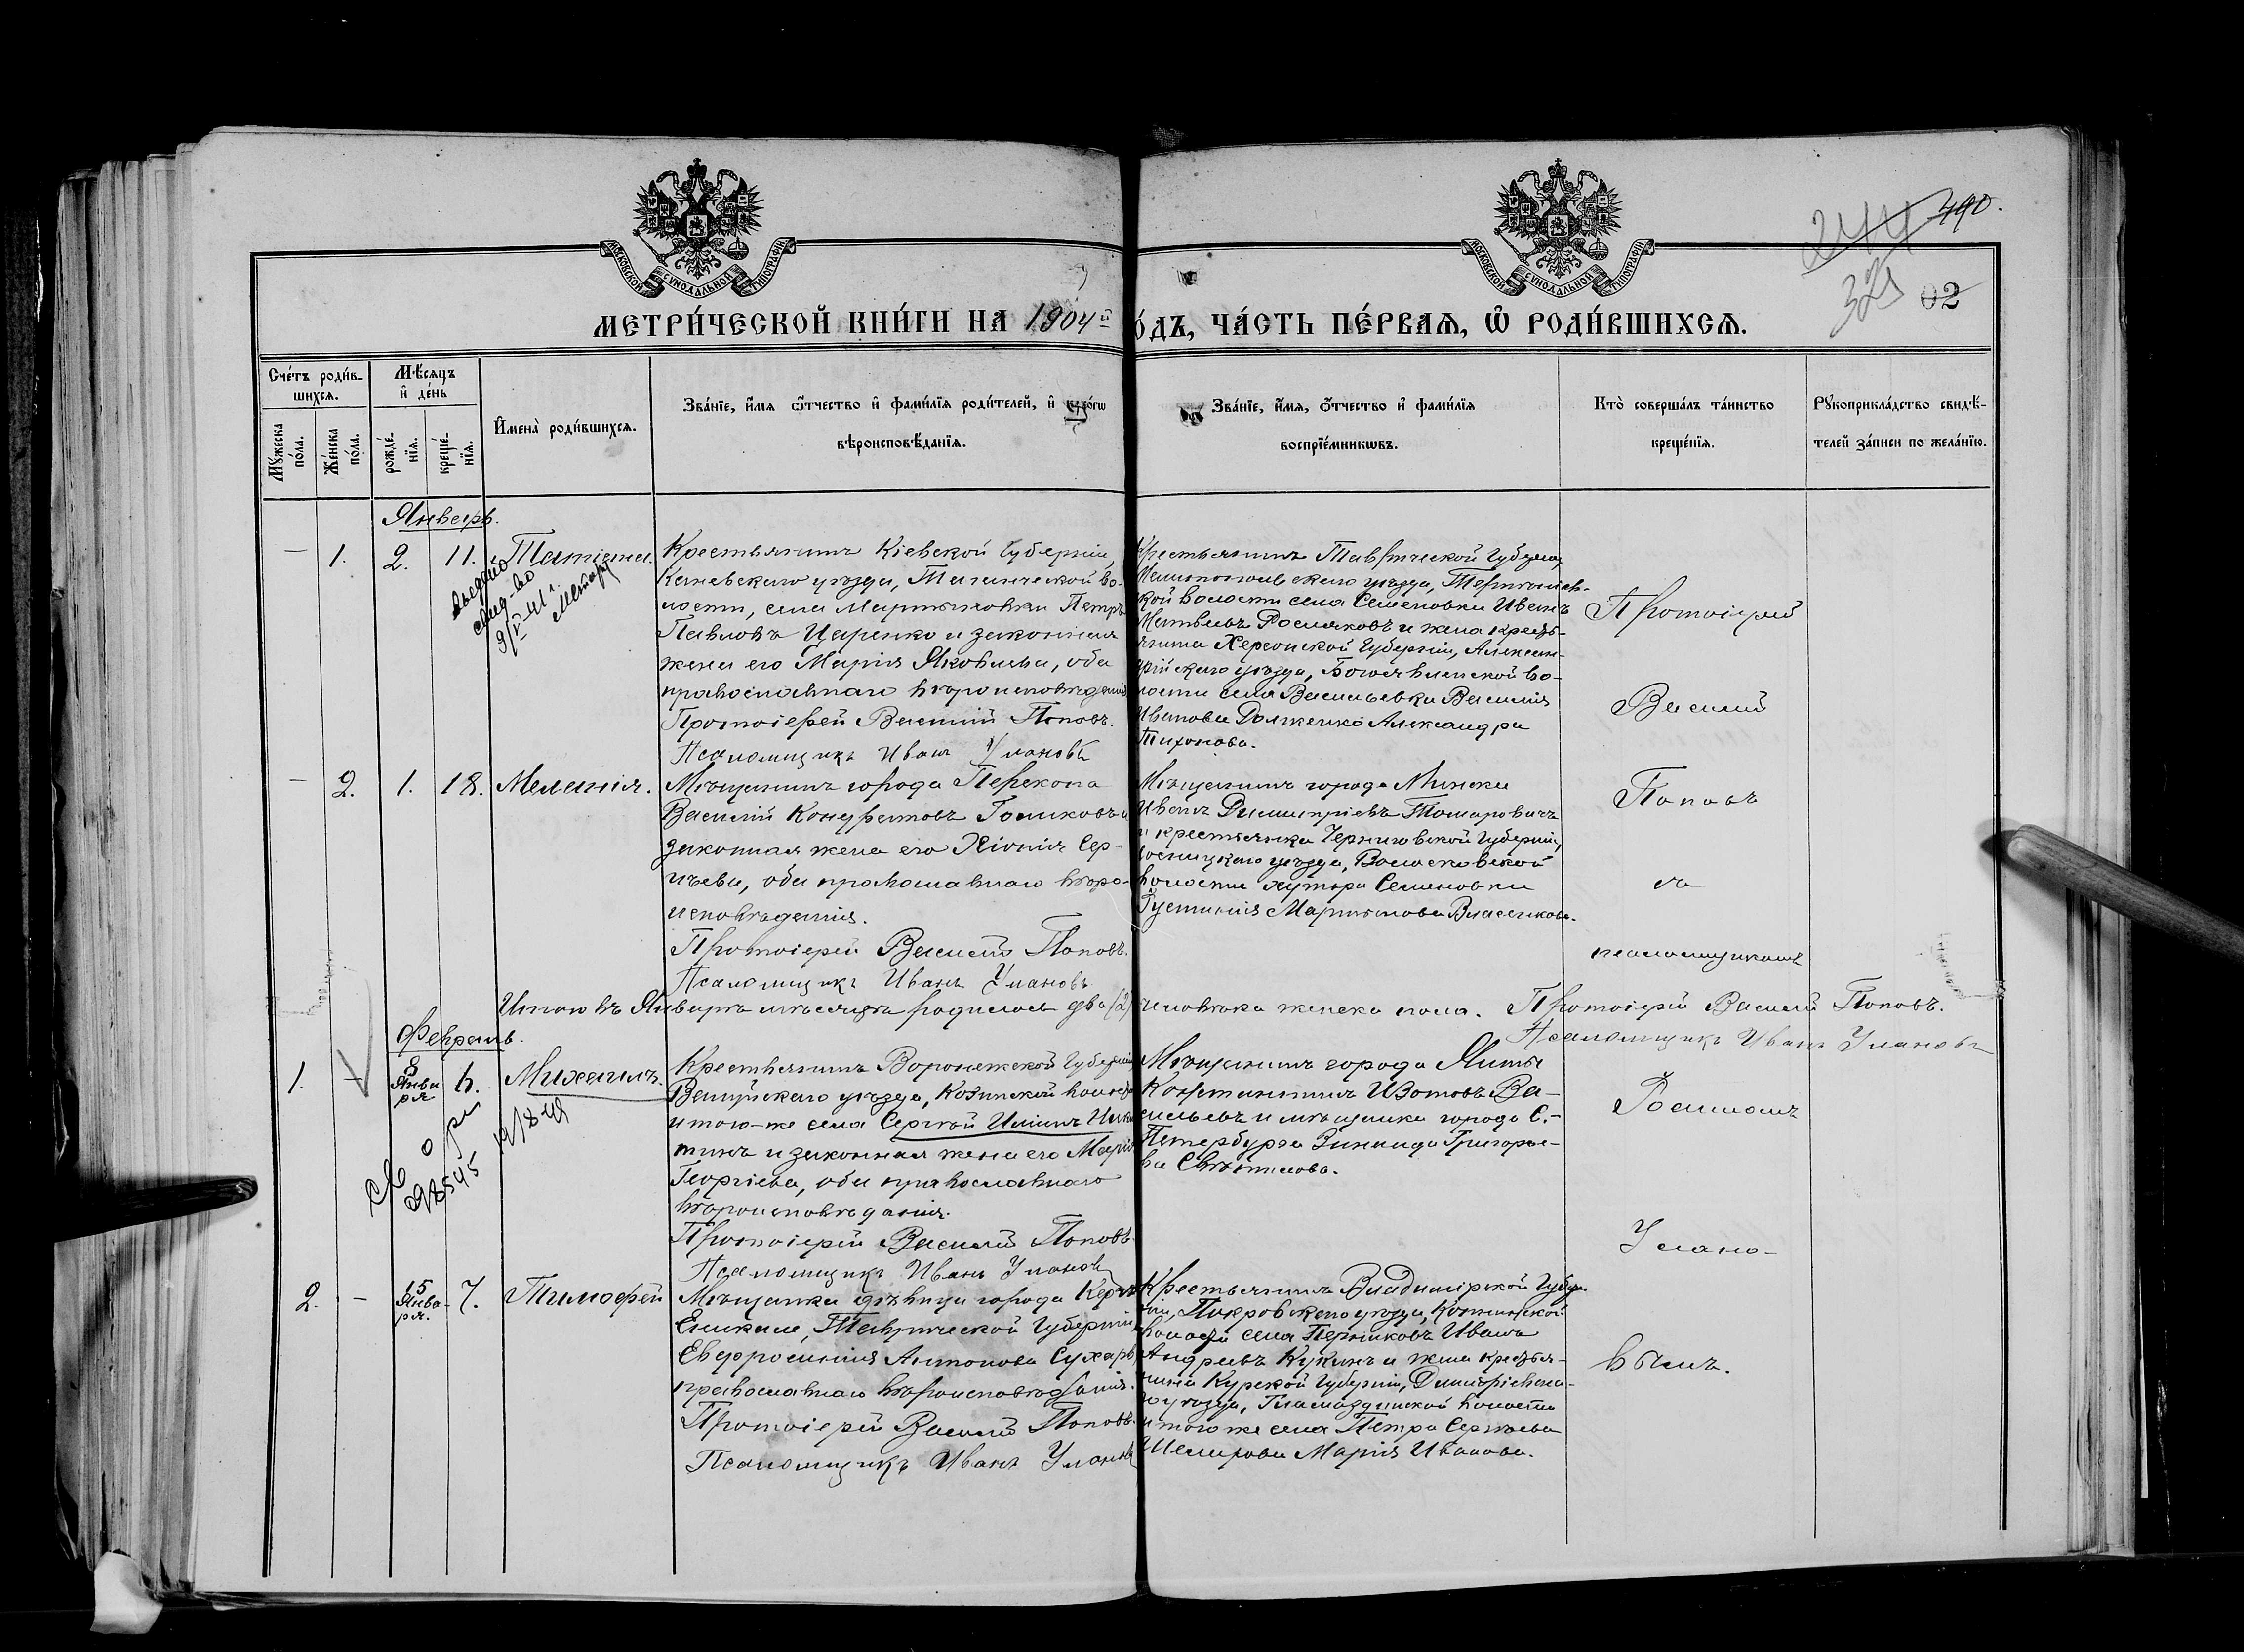 490.
244
329
02
МОСКОВСКОЙ СѴНОДАЛЬНОЙ ТИПОГРАФІИ
МОСКОВСКОЙ СѴНОДАЛЬНОЙ ТИПОГРАФІИ
МЕТРИ́ЧЕСКОЙ КНИ́ГИ НА 1904й
О́ДЪ, ЧА́СТЬ ПЕ́РВАЯ, Ѿ РОДИ́ВШИХСЯ.
Сче́тъ роди́в-
шихся.
Мѣ́сяцъ
и҆ де́нь
Мꙋ́жеска по́ла.
Же́нска по́ла.
рожде́-
нїя.
креще́-
нїя.
И҆мена̀ роди́вшихся.
Зва́нїе, и҆́мя ѻ҆́тчество и҆ фами́лїя роди́телей, и҆ како́гѡ
вѣроисповѣ́данїя.
Зва́нїе, и҆́мя, ѻ҆́тчество и҆ фами́лїя
воспрїе́мникѡвъ.
Кто̀ соверша́лъ та́инство
креще́нїя.
Рꙋкоприкла́дство свидѣ́-
телей за́писи по жела́нїю.
Январь.
— 1. 2. 11. Татіана.
Крестьянинъ Кіевской Губерніи,
Каневскаго уѣзда, Таганчской во-
лости, села Мартыновки Петръ
Павловъ Царенко и законная
жена его Марія Яковлева, оба
православнаго вѣроисповѣданія
Протоіерей Василій Поповъ.
Псаломщикъ Иванъ Улановъ
выдано
свид-во
9/V-41г.
Крестьянинъ Таврической Губерніи
Мелитопольскаго уѣзда, Терпѣніев-
кой волости села Семеновки Иванъ
Матвеевъ Росляковъ и жена кресть-
янина Херсонской Губерніи, Алексан-
дрійскаго уѣзда, Богоявленской во-
лости села Васильевки Василія
Иванова Долженко Александра
Тихонова.
Протоіерей
Василій
Поповъ
съ
псаломщикомъ
— 2. 1. 18. Меланія.
Мѣщанинъ города Перекопа
Василій Кондратовъ Голиковъ и
законная жена его Хіонія Сер-
гѣева, оба православнаго вѣро-
исповѣданія.
Протоіерей Василій Поповъ.
Псаломщикъ Иванъ Улановъ
Мѣщанинъ города Минска
Иванъ Димитріевъ Томаровичъ
и крестьянка Черниговской Губерніи,
Сосницкаго уѣзда, Волосковской
волости хутора Семеновки
Іустинія Мартынова Власенкова.
Итого въ Январѣ мѣсяцѣ родилось два (2) человѣка женска пола. Протоіерей Василій Поповъ.
Псаломщикъ Иванъ Улановъ
Февраль.
1. — 8 Января 6. Михаилъ.
Крестьянинъ Воронежской Губерніи
Валуйскаго уѣзда, Козинской волости
и того-же села Сергѣй Илiинъ Ники-
тинъ и законная жена его Марія
Георгіева, оба православнаго
вѣроисповѣданія.
Протоіерей Василій Поповъ
Псаломщикъ Иванъ Улановъ
19/8-49
Мѣщанинъ города Ялты
Константинъ Изотовъ Ва-
сильевъ и мѣщанка города С.-
Петербурга Зинаида Григорье-
ва Свѣтилова.
Романомъ
Улано-
вымъ.
2. — 15 Января. 7. Тимофей
Мѣщанка дѣвица города Керчь
Еникале, Таврической Губерніи
Евфросинія Антонова Сухарь,
православнаго вѣроисповѣданія.
Протоіерей Василій Поповъ.
Псаломщикъ Иванъ Улановъ
Крестьянинъ Владимірской Губер-
ніи, Покровскаго уѣзда,
волости села Перниковъ Иванъ
Андреевъ Кукинъ и жена крестья-
нина Курской Губерніи, Димитріевска-
го уѣзда, волости
и того же села Петра Сергѣева
Марія Иванова.